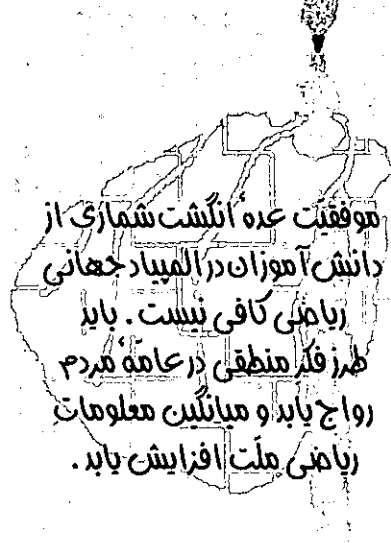 موفقیّت عدهٔ انگشت شماری از
دانش آموزان در المپیاد جهانی
ریاضی کافی نیست . باید
طرز فکر منطقی در عامّهٔ مردم
رواج یابد و میانگین معلومات
ریاضی ملّت افزایش یابد .